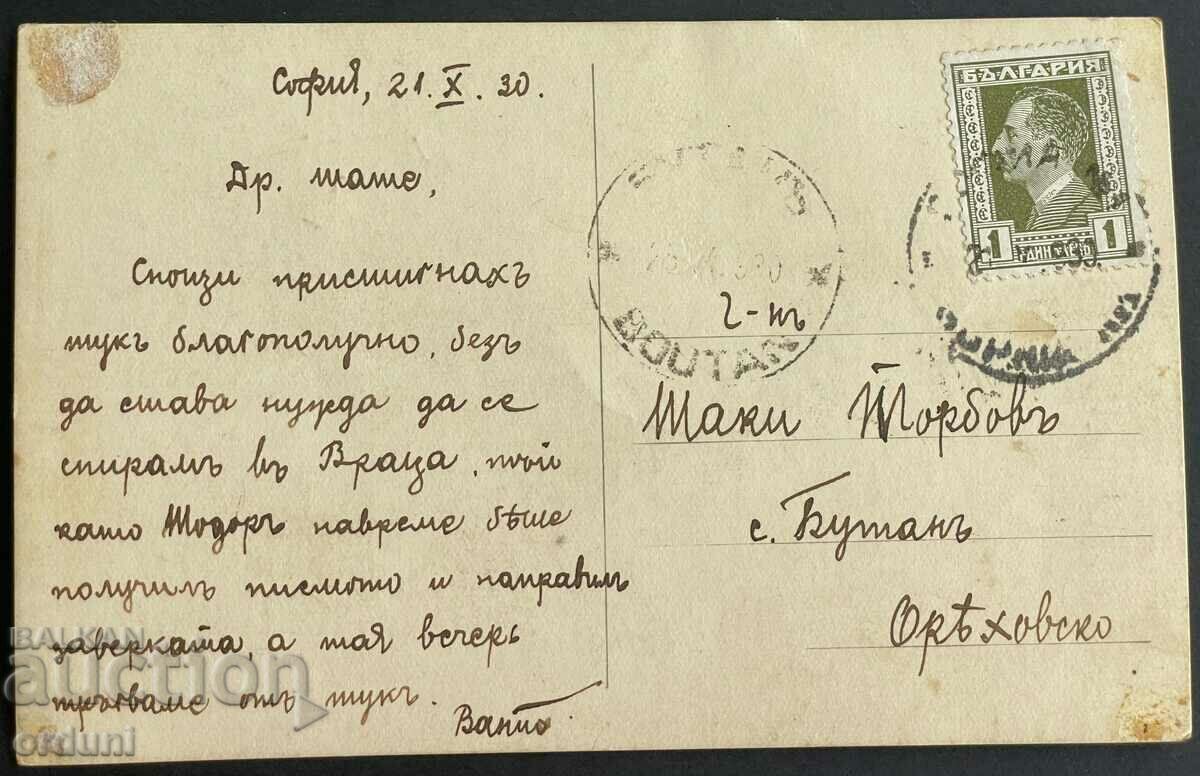 София, 21.X.30.
Др. тате,
Снощи пристигнахъ
тукъ благополучно, безъ
да става нужда да се
спирамъ въ Враца, тъй
като Тодоръ навреме бѣше
получилъ писмото и направилъ
заверката, а тая вечерь
тръгваме отъ тукъ.
БЪЛГАРИЯ
1 ЕДИН ЛЕВЪ 1
BOUTAN
Г-нъ
Таки Торбовъ
с. Бутанъ
Орѣховско
BALKAN
auction
orduni